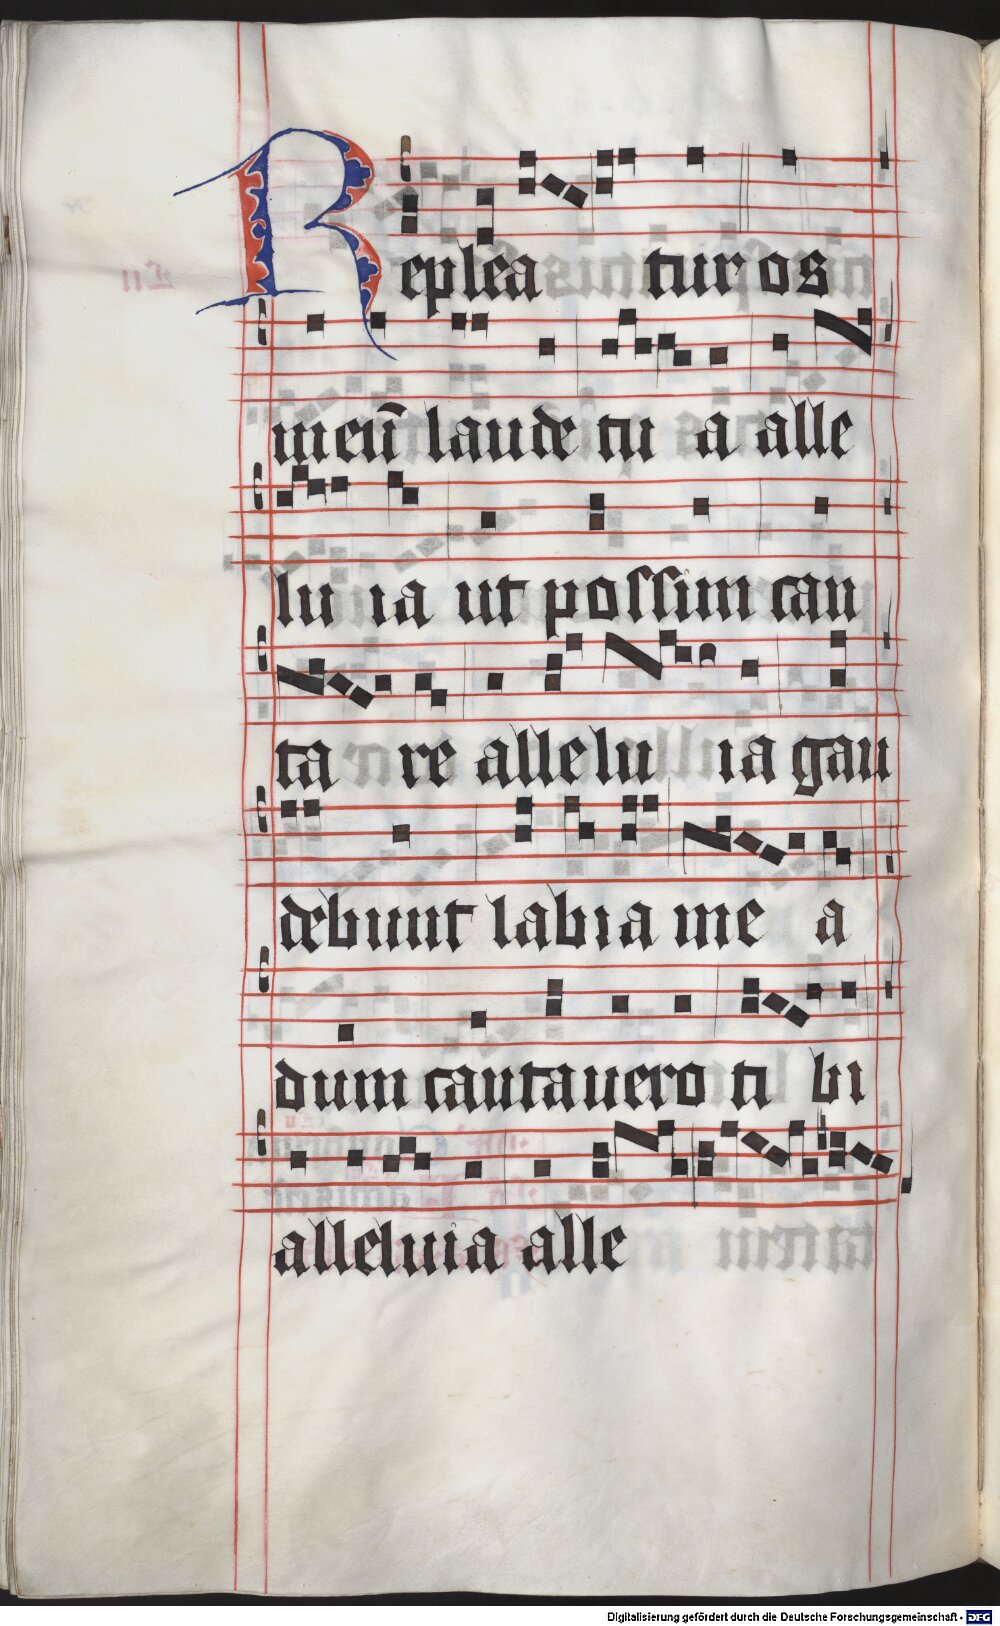 Replea tur os
meū laude tu a alle
lu ia ut possim can
ta re allelu ia gau
debunt labia me a
dum cantauero ti bi
alleluia alle
Digitalisierung gefördert durch die Deutsche Forschungsgemeinschaft - DFG